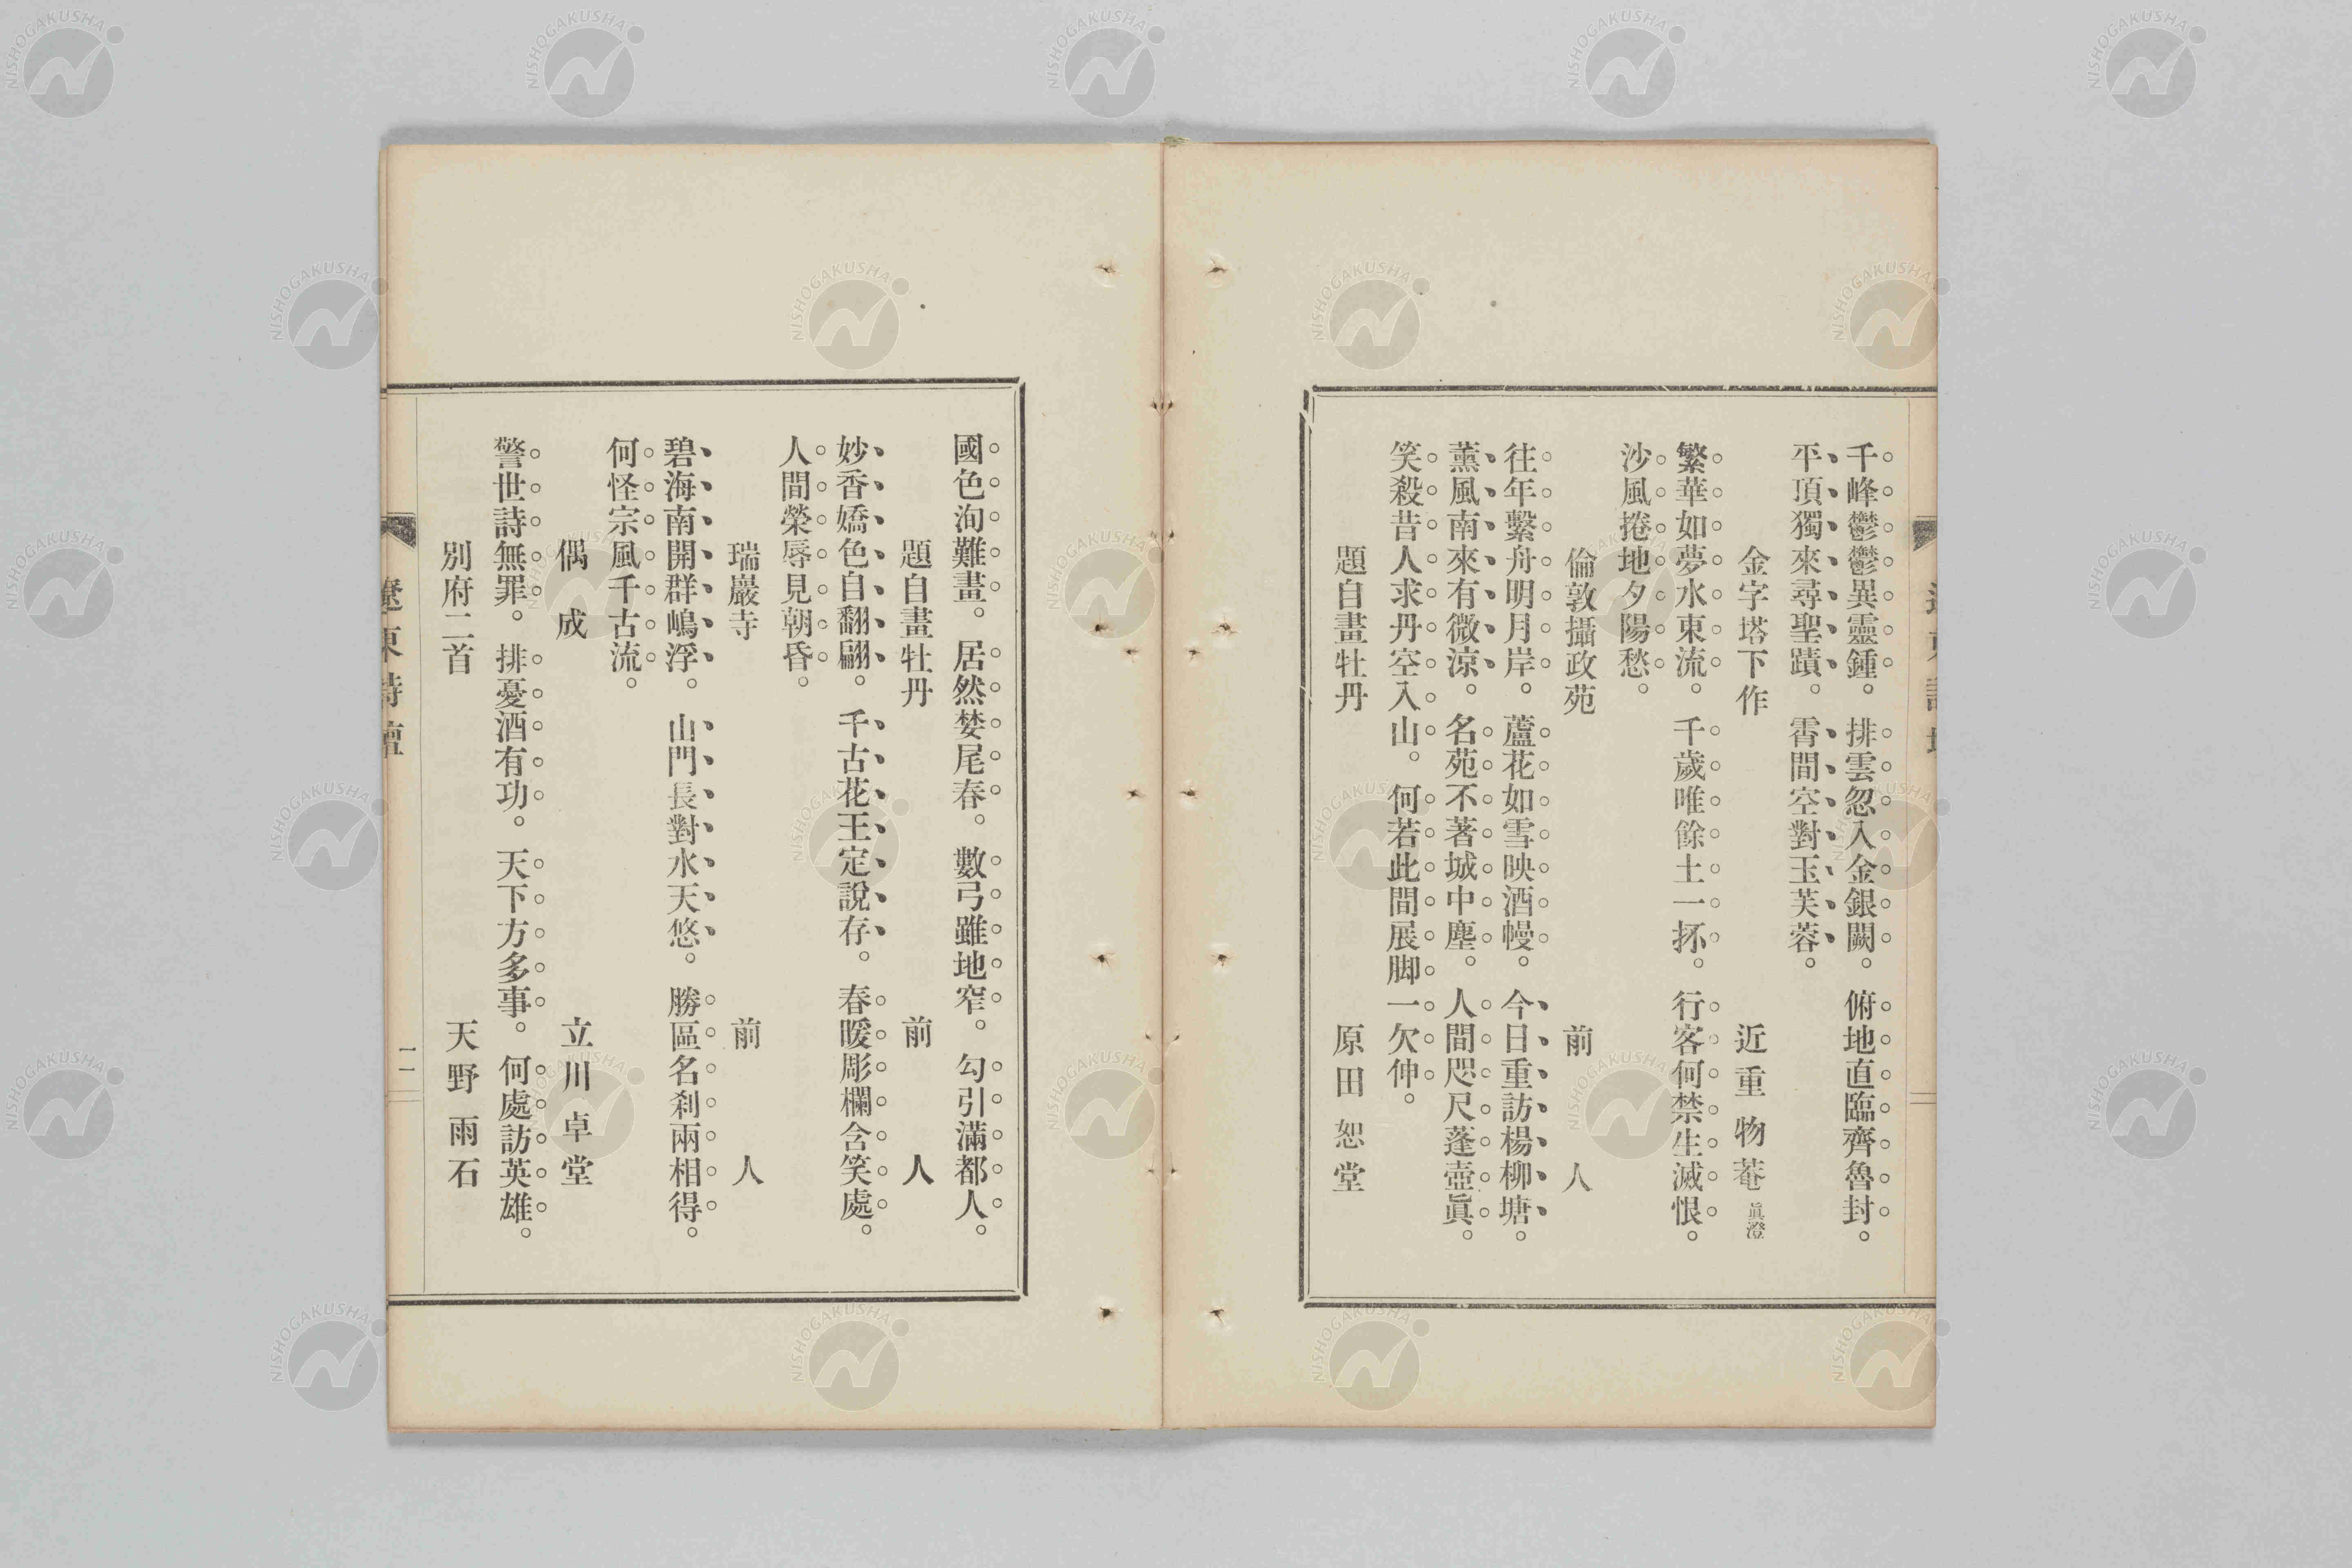 千峰鬱鬱異靈鍾。排雲忽入金銀闕。俯地直臨齊魯封。
平頂獨來尋聖蹟。霄間空對玉芙蓉。
金字塔下作 近重物菴眞澄
繁華如夢水東流。千歲唯餘土一抔。行客何禁生滅恨。
沙風捲地夕陽愁。
倫敦攝政苑 前人
往年繫舟明月岸。蘆花如雪映酒幔。今日重訪楊柳塘。
薰風南來有微涼。名苑不著城中塵。人間咫尺蓬壺眞。
笑殺昔人求丹空入山。何若此間展脚一欠伸。
題自畫牡丹 原田恕堂
國色洵難畫。居然婪尾春。數弓雖地窄。勾引滿都人。
題自畫牡丹 前人
妙香嬌色自翻翩。千古花王定說存。春暖彫欄含笑處。
人間榮辱見朝昏。
瑞巖寺 前人
碧海南開群嶋浮。山門長對水天悠。勝區名刹兩相得。
何怪宗風千古流。
偶成 立川卓堂
警世詩無罪。排憂酒有功。天下方多事。何處訪英雄。
別府二首 天野雨石
遼東詩壇
一一
NISHOGAKUSHA